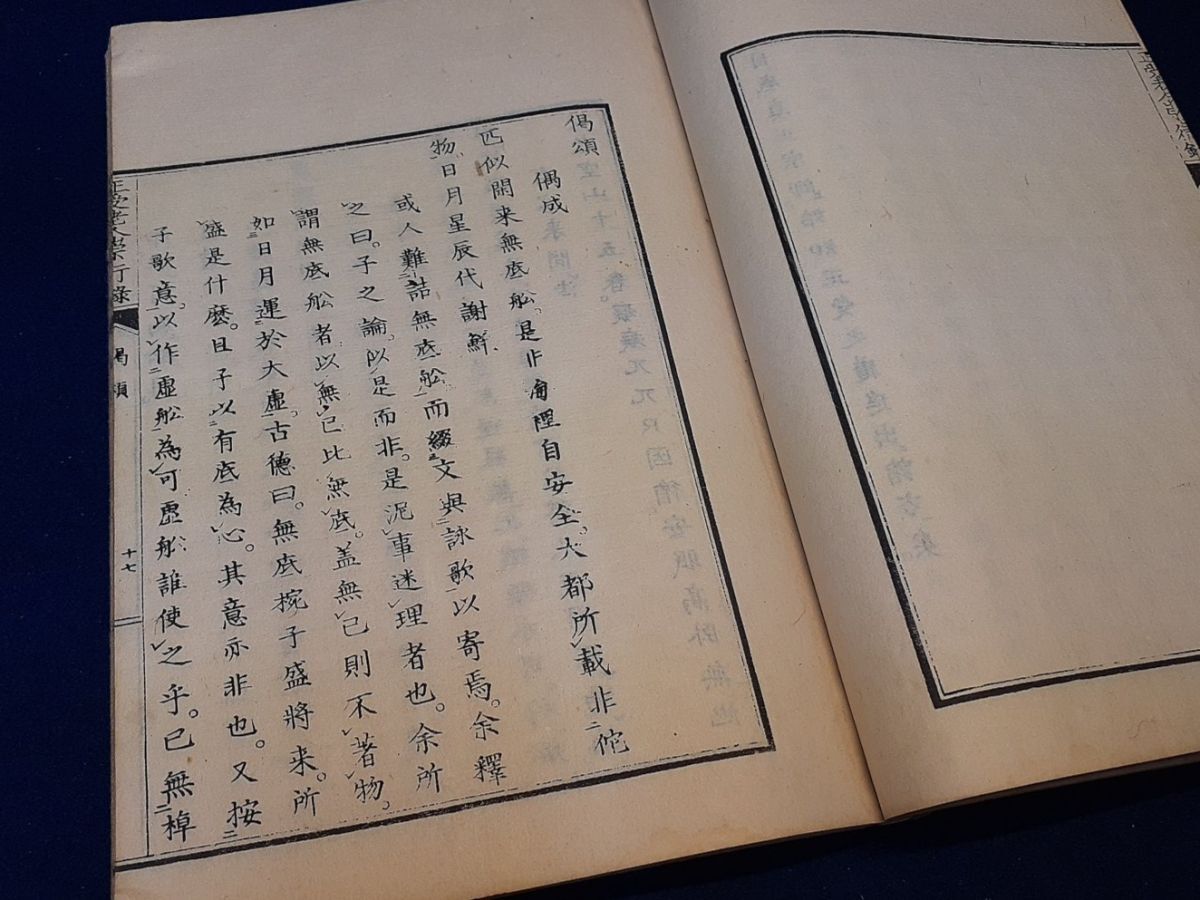 偈頌
偶成
匹似閑来無底船。是非海裡自安全。大都所載非佗
物。日月星辰代謝鮮
或人難詰無底船而綴文與詠歌以寄焉。余釋
之曰。子之論。以是而非。是泥事迷理者也。余所
謂無底船者以無己比無底。盖無己則不著物。
如日月運於大虛。古德曰。無底椀子盛將来。所
盛是什麽。且子以有底為心。其意亦非也。又按
子歌意。以作虛船為可。虛船誰使之乎。已無棹
正受老人崇行錄
偈頌
十七